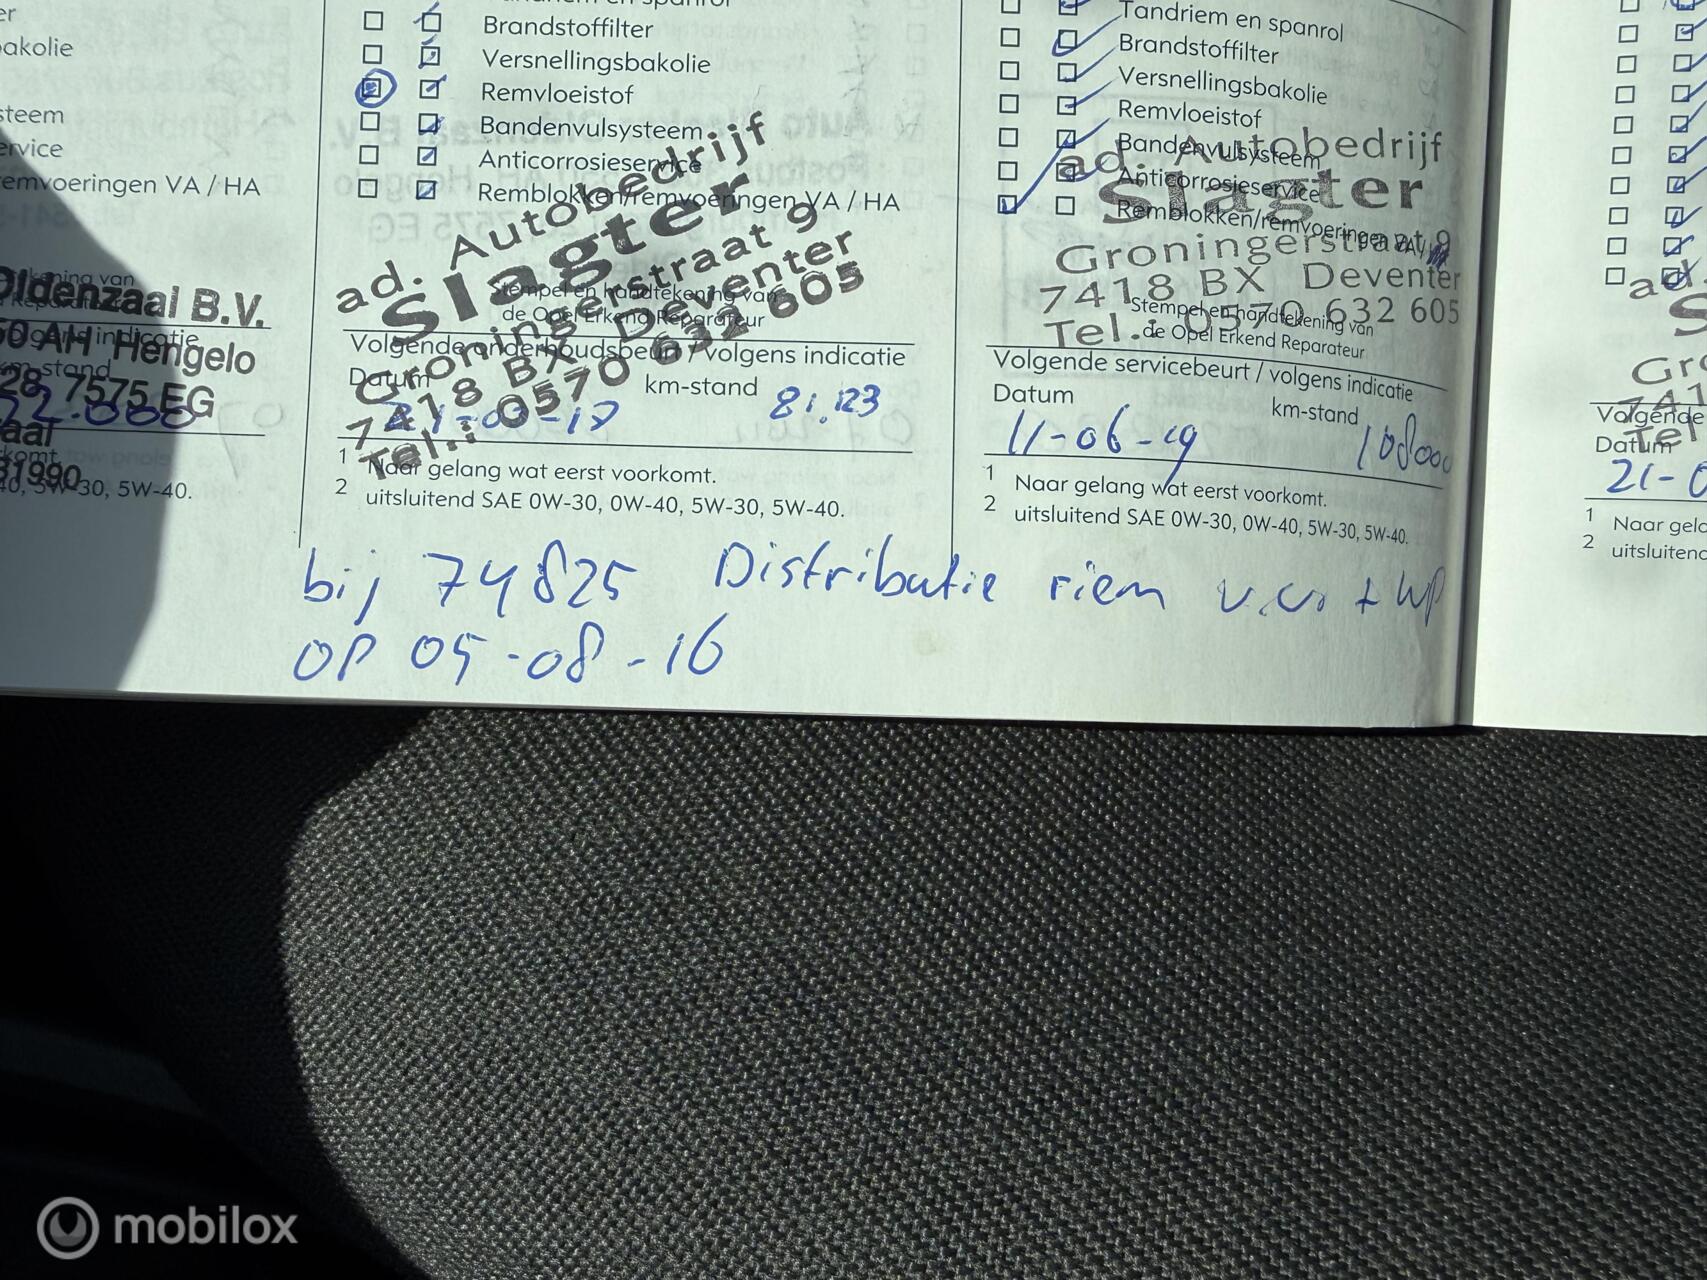 akolie
steem
ervice
emvoeringen VA / HA
Oldenzaal B.V.
AH Hengelo
28, 7575 EG
22.000
aal
31990
40, 5W-30, 5W-40.
Brandstoffilter
Versnellingsbakolie
Remvloeistof
Bandenvulsysteem
Anticorrosieservice
Remblokken/remvoeringen VA / HA
ad. Autobedrijf
Slagter
Groningerstraat 9
7418 BX Deventer
Tel.: 0570 632 605
Stempel en handtekening van
de Opel Erkend Reparateur
Volgende onderhoudsbeurt / volgens indicatie
Datum km-stand
81.123
1 Naar gelang wat eerst voorkomt.
2 uitsluitend SAE 0W-30, 0W-40, 5W-30, 5W-40.
Tandriem en spanrol
Brandstoffilter
Versnellingsbakolie
Remvloeistof
Bandenvulsysteem
Anticorrosieservice
Remblokken/remvoeringen VA /
ad. Autobedrijf
Slagter
Groningerstraat 9
7418 BX Deventer
Tel.: 0570 632 605
Stempel en handtekening van
de Opel Erkend Reparateur
Volgende servicebeurt / volgens indicatie
Datum km-stand
11-06-19 108000
1 Naar gelang wat eerst voorkomt.
2 uitsluitend SAE 0W-30, 0W-40, 5W-30, 5W-40.
ad.
Gro
7418
Tel
Volgende
Datum
21-0
1 Naar gelang
2 uitsluitend
bij 74825 Distributie riem v.v. + WP
op 05-08-16
mobilox